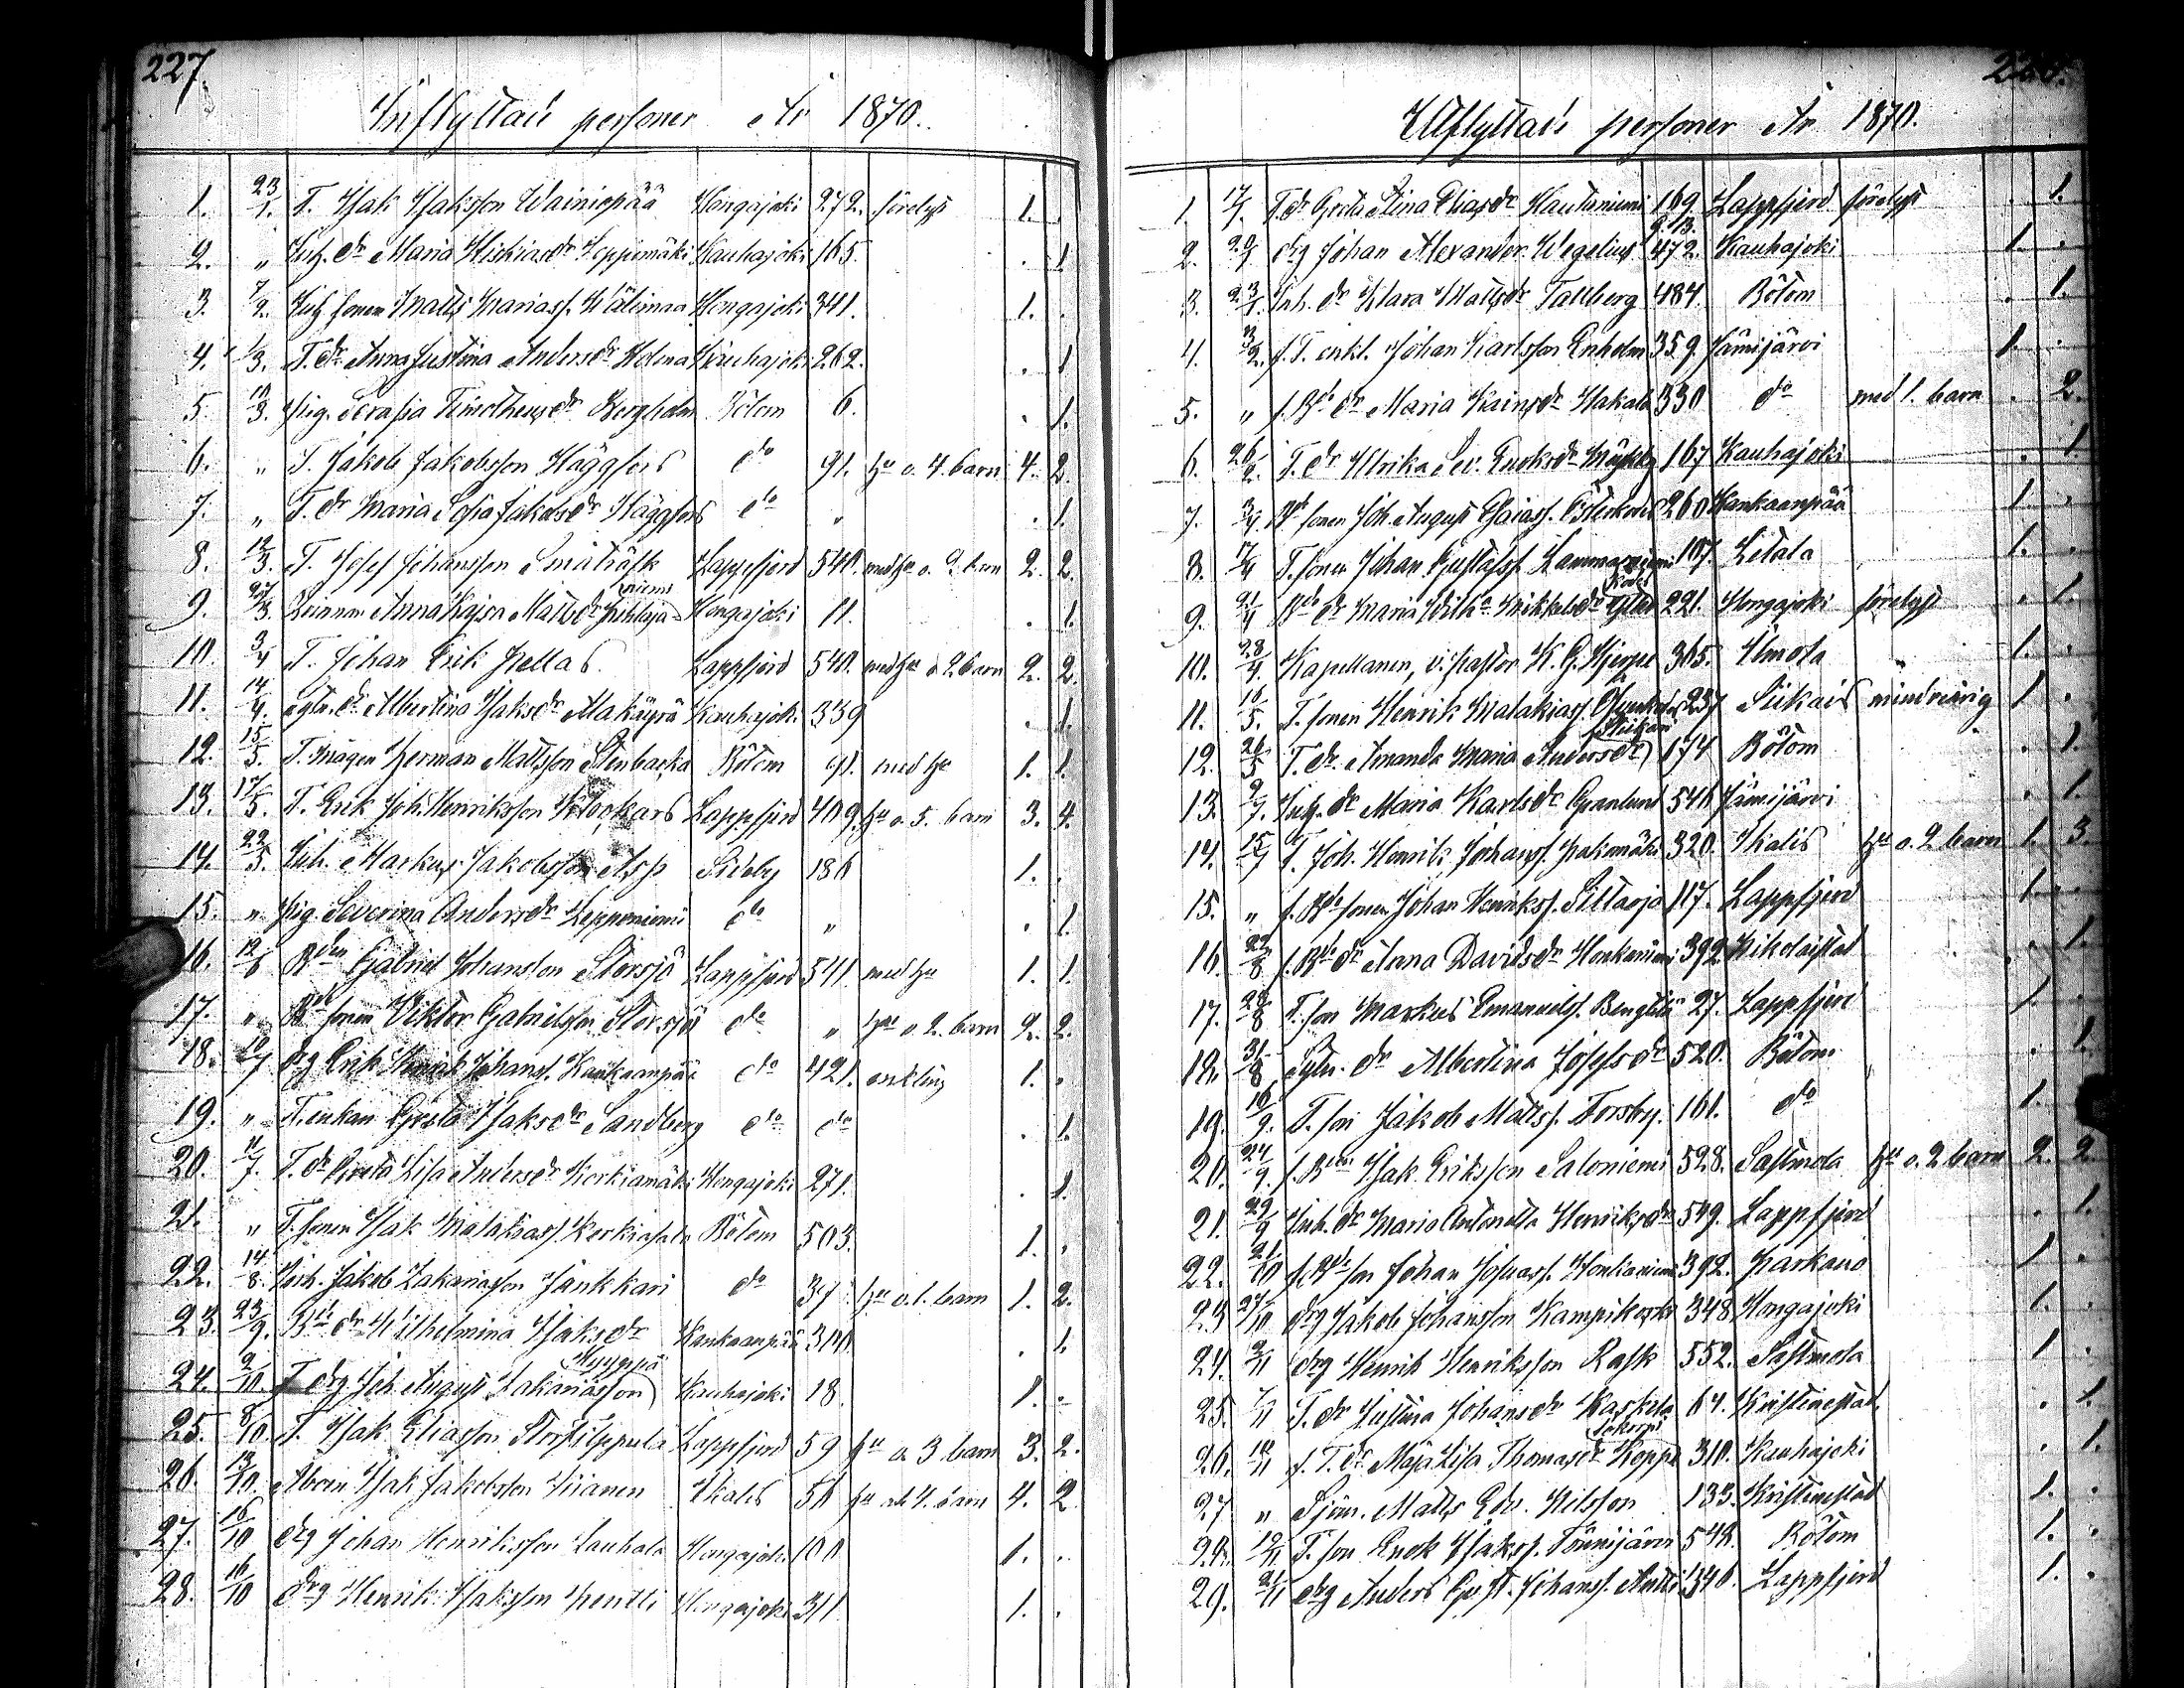 227.
Inflyttade personer År 1870.
1. 23/1. T. Isak Isaksson Wainiopää Hongajoki 272. förelyst 1. .
2. " Inh. dr Maria Hiskiasdr Leppimäki Kauhajoki 165. . 1.
3. 7/2. Inh sonen Matts Mariass. Wälimaa Hongajoki 341. 1. .
4. 1/3. T. dr Anna Justina Andersdr Holma Kauhajoki 262. . 1
5. 18/3. pig. Serafia Timotheusdr Bergholm Bötom 6. . 1.
6. " T. Jakob Jakobsson Häggfors do 91. hu o. 4. barn 4. 2.
7. " T. dr Maria Sofia Jakobsdr Häggfors do " . 1.
8. 12/3. T. Josef Johansson Småträsk Lappfjerd 540. med hu o. 2. barn 2. 2.
9. 27/3. Anna Kajsa Mattsdr niemi Hongajoki 11. . 1.
10. 3/4 T. Johan Erik Hellas Lappfjerd 540. med hu o 2 barn 2. 2.
11. 14/4. dr Albertina Isaksdr Makäyrä Kauhajoki 339 . 1.
12. 15/5. T. mågen Herman Mattsson Stenbacka Bötom 91. med hu 1. 1.
13. 17/5. T. Erik Joh. Henriksson Klockars Lappfjerd 409. hu o. 5. barn 3. 4.
14. 22/5. Inh. Markus Jakobsson Asp Sideby 186 1. .
15. " pig. Severina Andersdr Lepponiemi do " . 1.
16. 12/6 Bden Gabriel Johansson Storsjö Lappfjerd 541. med hu 1. 1.
17. " Bde sonen Viktor Gabrielsson Storsjö do " hu o. 2. barn 2. 2.
18. 10/7 drg Erik Henrik Johanss. Kankaanpää do 421. enkling 1. .
19. " T. enkan Greta Isaksdr Sandberg do do . 1.
20. 11/7. T. dr Greta Lisa Andersdr Korkiamäki Hongajoki 271. . 1.
21. " T. sonen Isak Malakiass. Korkiasalo Bötom 503. 1. .
22. 14/8. Inh. Jakob Zakariasson Jänkkäri do 37. hu o. 1. barn 1. 2.
23. 23/9. Bde dr Wilhelmina Isaksdr Kankaanpää 300. . 1.
24. 2/10. T drg Joh August Sakariasson Myyppä Kauhajoki 18. 1. .
25. 8/10. T. Isak Eliasson Storfilppula Lappfjerd 59 hu o. 3 barn 3. 2.
26. 13/10. Aboen Isak Jakobsson Ikalis 56 hu och 4. barn 4. 2
27. 16/10 drg Johan Henriksson Lauhala Hongajoki 100 1. .
28. 16/10 drg Henrik Isaksson Pentti Hongajoki 311 1. .
Utflyttade personer År 1870.
1. 17/1. T. dr Greta Stina Eliasdr Hautaniemi 169 Lappfjerd förelyst . 1.
2. 20/1 drg Johan Alexander Wegelius 472. Kauhajoki 1. .
3. 23/1. Inh. dr Klara Mattsdr Tallberg 484. Bötom . 1.
4. 3/2. f. T. enkl. Johan Karlsson Enholm 359. Jämijärvi 1 .
5. " f. Bde dr Maria Hakala 330 do med 1. barn . 2.
6. 26/2. T. dr Ulrika Sev. Enoksdr 167 Kauhajoki . 1.
7. 3/4. Bde sonen Joh. August Esaiass. 260 Kankaanpää 1. .
8. 17/4 T. sonen Johan Gustafss. Lammasniemi 107. Letala 1. .
9. 21/4 Bde dr Maria Mikkelsdr 221. Hongajoki förelyst . 1.
10. 28/4 Kapellanen, v. pastor K. G. Hjerpe 365. Ilmola 1. .
11. 16/5. T. sonen Henrik Malakiass. 237 Siikais minderårig 1 .
12. 26/5 T. dr Amanda Maria Andersdr 174 Bötom . 1.
13. 2/7. Inh. dr Maria Karlsdr Granlund 546 Jämijärvi . 1.
14. 15/7 T. Joh. Henrik Johanss. Hakomäki 320. Ikalis hu o. 2 barn 1. 3.
15. " f. Bde sonen Johan Henrikss. Siltaoja 117. Lappfjerd 1. .
16. 22/8 f. Bde dr Anna Davidsdr Honkaniemi 392 Nikolaistad . 1.
17. 28/8 T. son Markus Emanuelss. 27. Lappfjerd 1. .
18. 31/8 dr Albertina Josefsdr 520. Bötom . 1.
19. 16/9. T. son Jakob Mattss. Forsby 161. do 1. .
20. 24/9. f. Bden Isak Eriksson Saloniemi 528. Sastmola hu o. 2 barn 2. 2
21. 29/9 Inh. dr Maria Antonetta Henriksdr 549. Lappfjerd . 1.
22. 21/10 f. Bde son Johan Josuass. Honkaniemi 392. Parkano 1 .
23 27/10 drg Jakob Johansson Kampikoski 348 Hongajoki 1. .
24. 2/11 drg Henrik Henriksson Rask 552. Sastmola 1 .
25. 7/11 T. dr Justina Johansdr Kaskela 64. Kristinestad . 1.
26. 10/11 f. T. dr Maja Lisa Thomasdr 310. Kauhajoki . 1.
27 " Sjöm. Matts Edv. Nilsson 133. Kristinestad 1. .
28. 12/11. T. son Enok Isakss. 542. Bötom 1. .
29. 21/11 drg Anders Gust. Johanss. 346. Lappfjerd 1. .